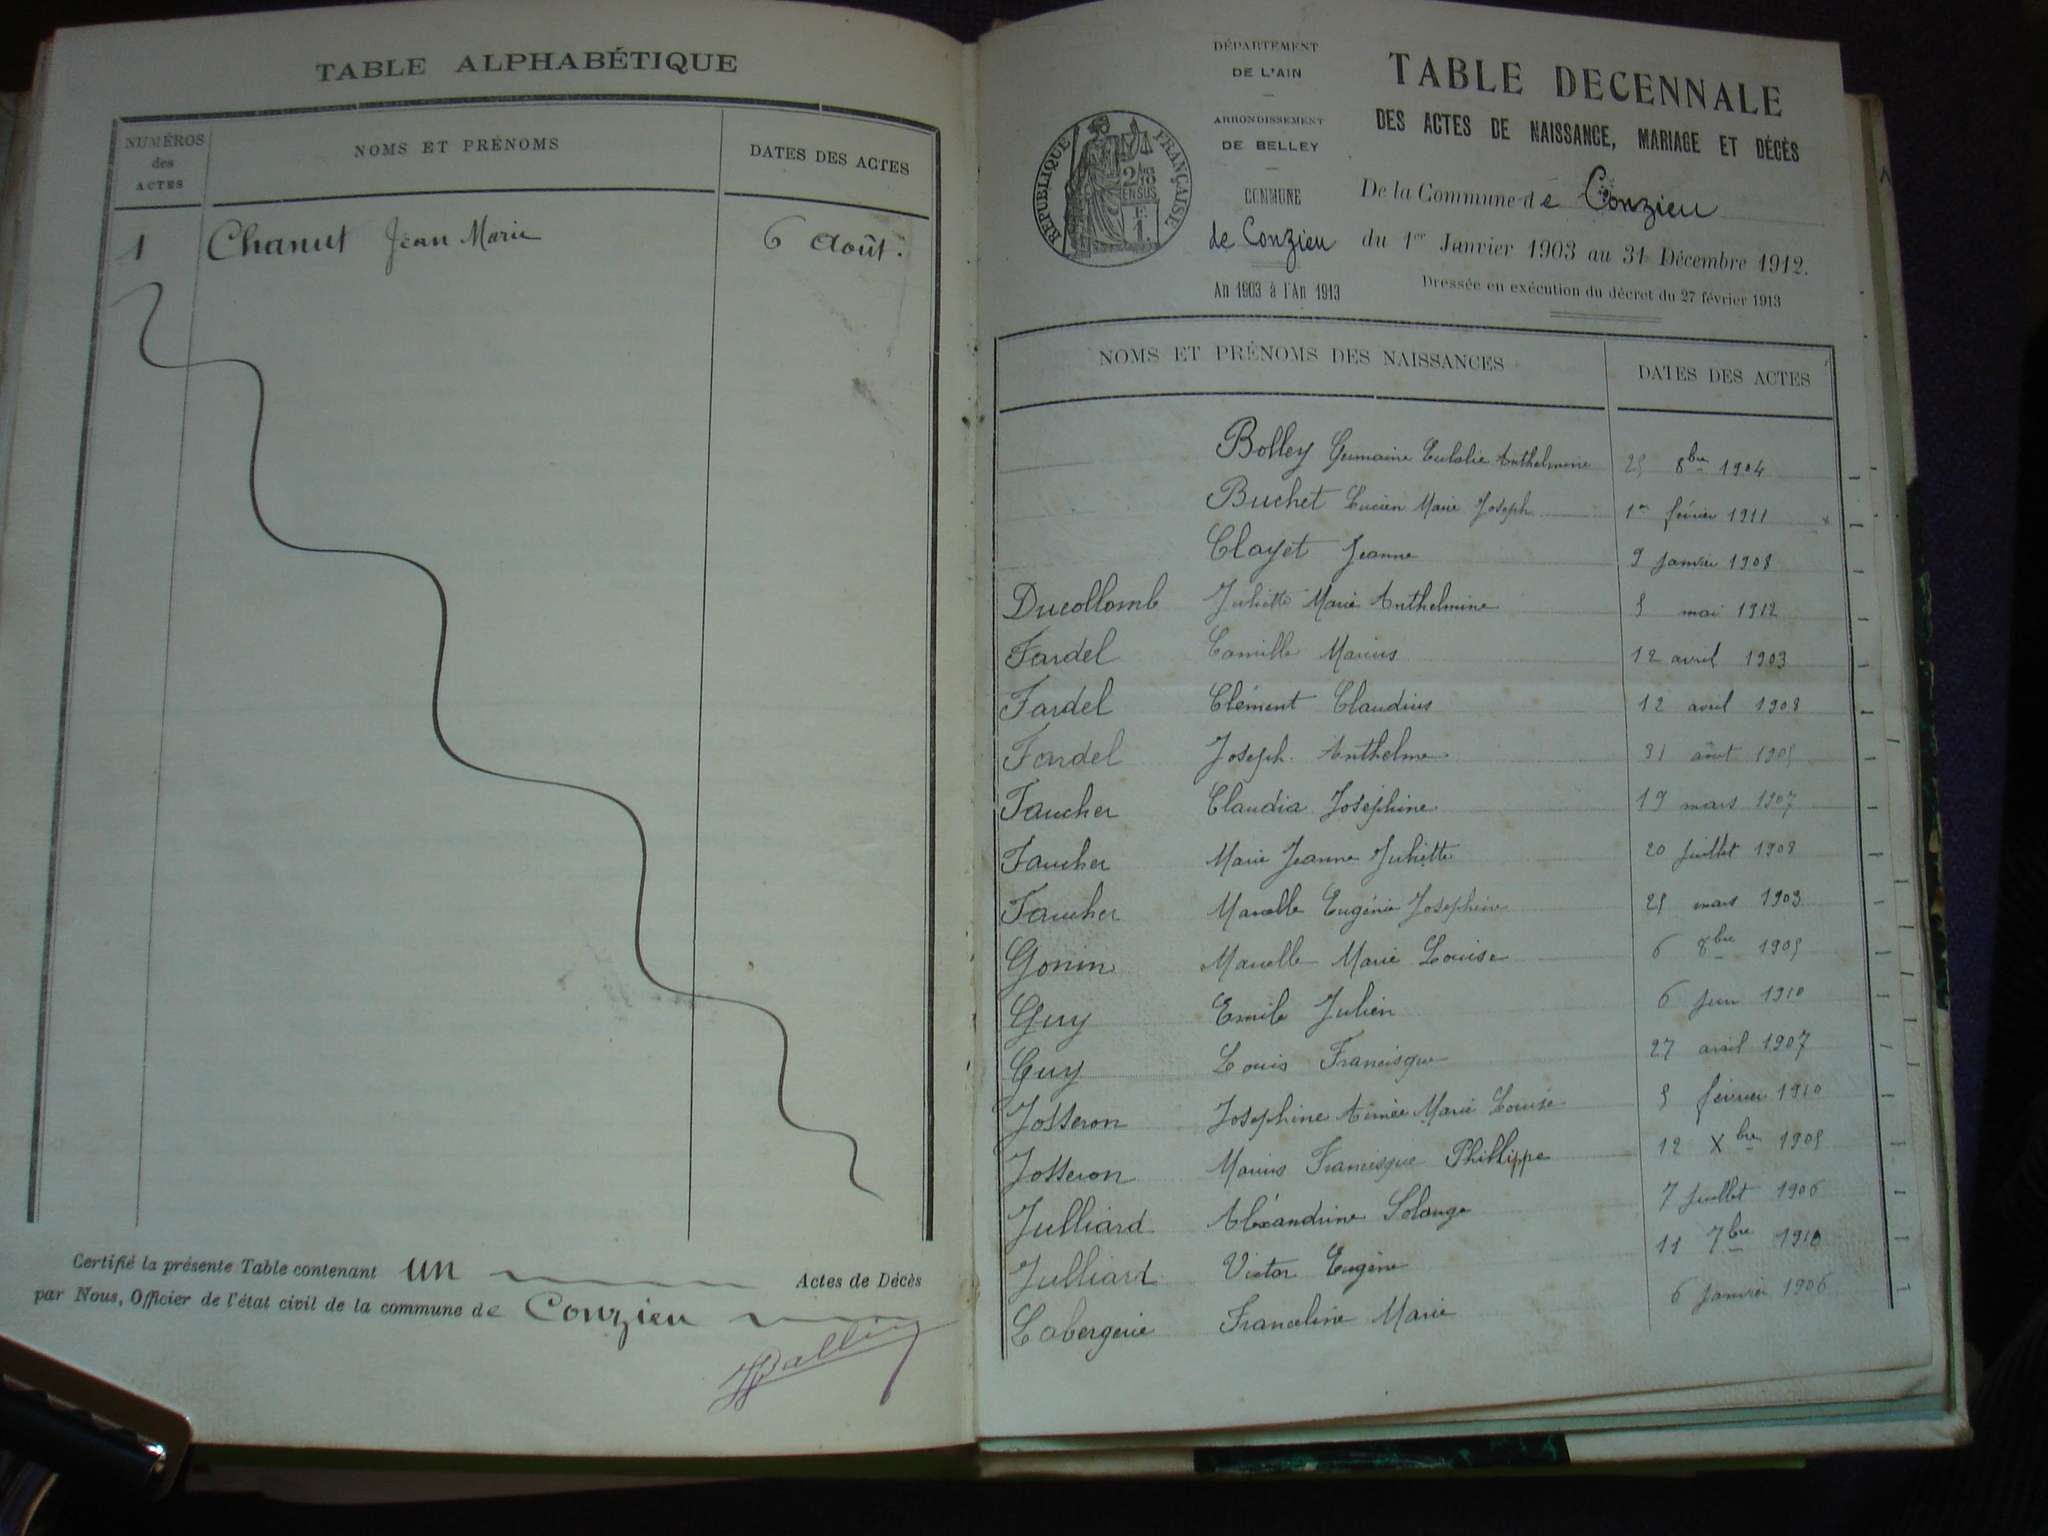 TABLE ALPHABÉTIQUE
NUMÉROS des ACTES NOMS ET PRÉNOMS DATES DES ACTES
1 Chanut Jean Marie 6 Août.
Certifié la présente Table contenant un Actes de Décès
par Nous, Officier de l'état civil de la commune de Conzieu
DÉPARTEMENT
DE L'AIN
ARRONDISSEMENT
DE BELLEY
COMMUNE
de Conzieu
An 1903 à l'An 1913
RÉPUBLIQUE FRANÇAISE
TABLE DECENNALE
DES ACTES DE NAISSANCE, MARIAGE ET DÉCÈS
De la Commune de Conzieu
du 1er Janvier 1903 au 31 Décembre 1912.
Dressée en exécution du décret du 27 février 1913
NOMS ET PRÉNOMS DES NAISSANCES DATES DES ACTES
Bolley Germaine Eulalie Anthelmine 25 8bre 1904
Buchet Lucien Marie Joseph 1er février 1911
Clayet Jeanne 9 janvier 1908
Ducollomb Juliette Marie Anthelmine 5 mai 1912
Fardel Camille Marius 12 avril 1903
Fardel Clément Claudius 12 avril 1908
Fardel Joseph Anthelme 31 août 1905
Faucher Claudia Joséphine 19 mars 1907
Faucher Marie Jeanne Juliette 20 juillet 1908
Faucher Marcelle Eugénie Joséphine 25 mars 1903
Gonin Marcelle Marie Louise 6 8bre 1905
Guy Emile Julien 6 juin 1910
Guy Louis Francisque 27 avril 1907
Josseron Joséphine Aimée Marie Louise 5 février 1910
Josseron Marius Francisque Phillippe 12 Xbre 1905
Julliard Aléxandrine Solange 7 juillet 1906
Julliard Victor Eugène 11 7bre 1910
Labergerie Franceline Marie 6 janvier 1906